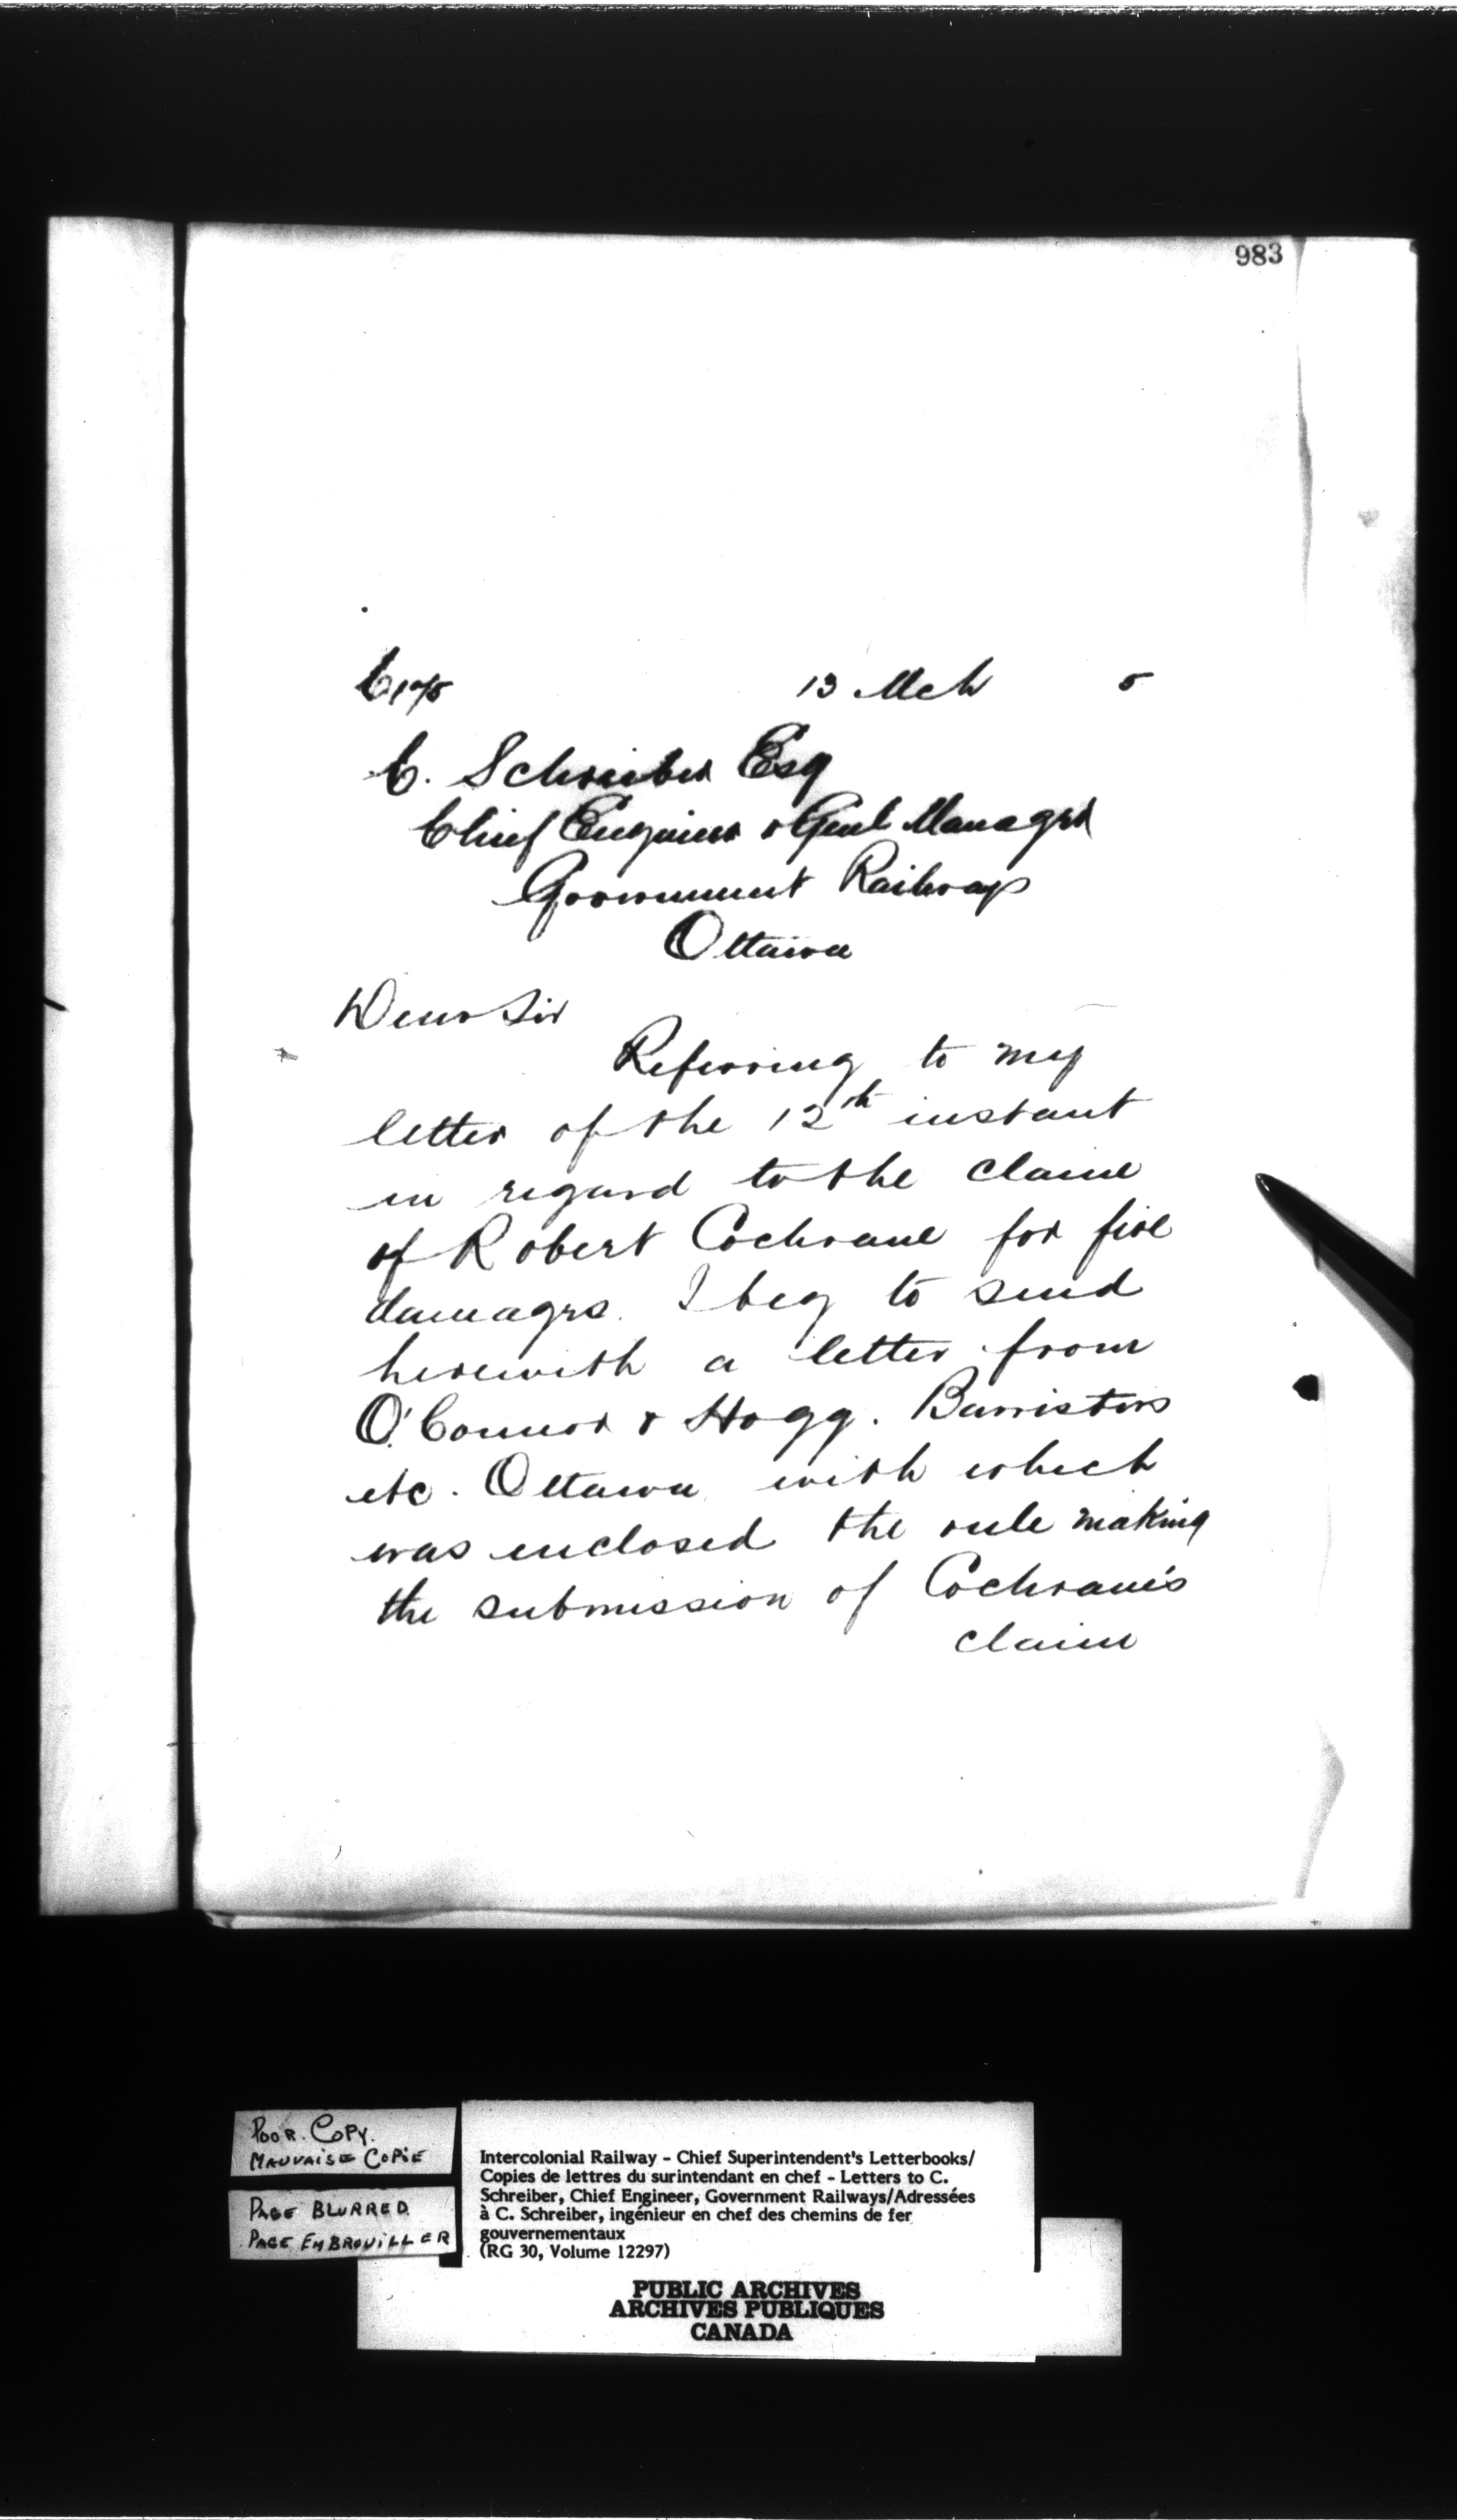 983
13 Mch 5
C. Schreiber Esq
Chief Engineer & Genl Manager
Government Railways
Ottawa
Dear Sir
Referring to my
letter of the 12th instant
in regard to the claim
of Robert Cochrane for fire
damages. I beg to send
herewith a letter from
O'Connor & Hogg. Barristers
etc. Ottawa with which
was enclosed the rule making
the submission of Cochrane's
claim
POOR COPY.
MAUVAISE COPIE
PAGE BLURRED.
PAGE EMBROUILLER
Intercolonial Railway - Chief Superintendent's Letterbooks/
Copies de lettres du surintendant en chef - Letters to C.
Schreiber, Chief Engineer, Government Railways/Adressées
à C. Schreiber, ingénieur en chef des chemins de fer
gouvernementaux
(RG 30, Volume 12297)
PUBLIC ARCHIVES
ARCHIVES PUBLIQUES
CANADA